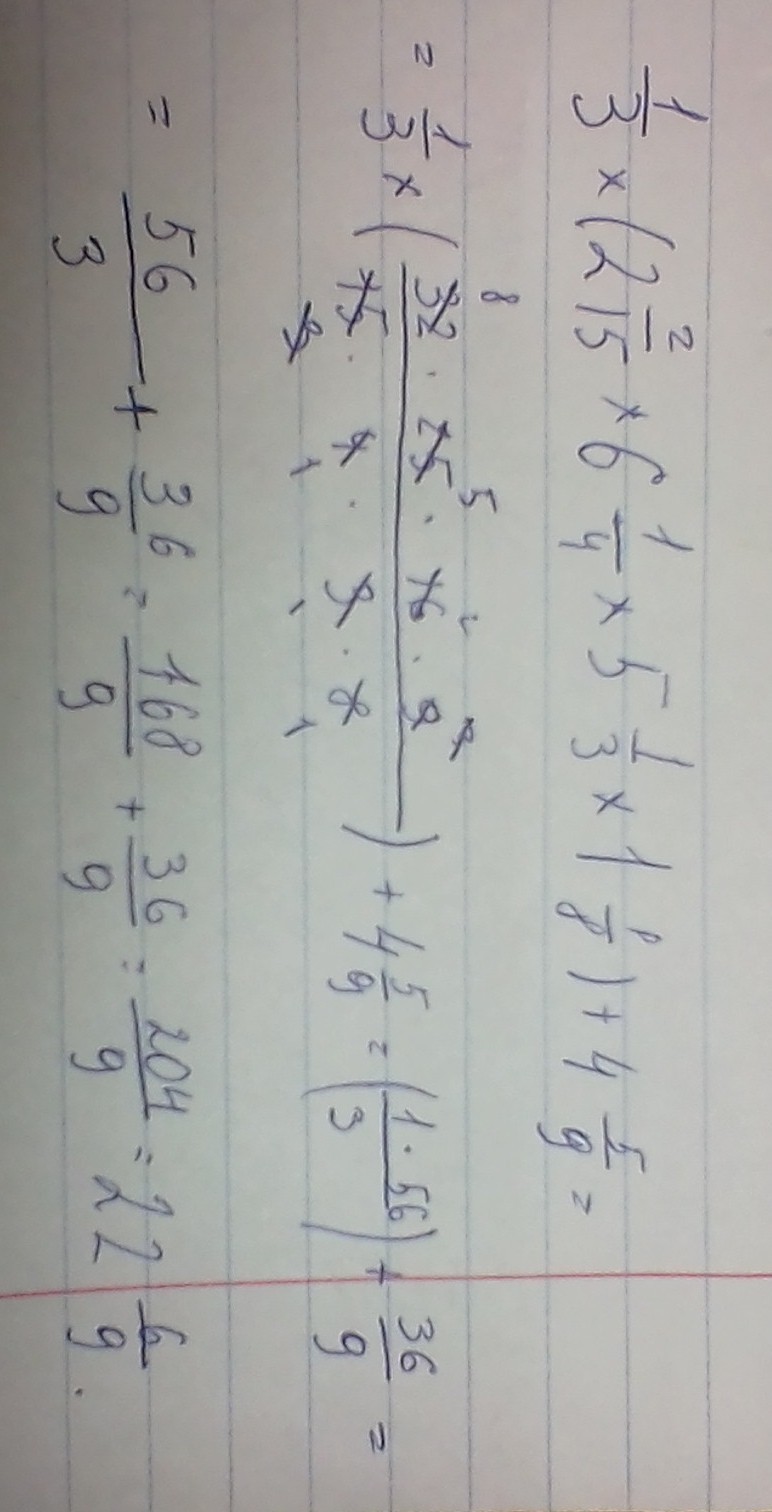 1/3 × (2 2/15 × 6 1/4 × 5 1/3 × 1 1/8) + 4 5/9 =
= 1/3 × (32 · 25 · 16 · 9 / 15 · 4 · 3 · 8) + 4 5/9 = (1 · 56 / 3) + 36/9 =
= 56/3 + 36/9 = 168/9 + 36/9 = 204/9 = 22 6/9.